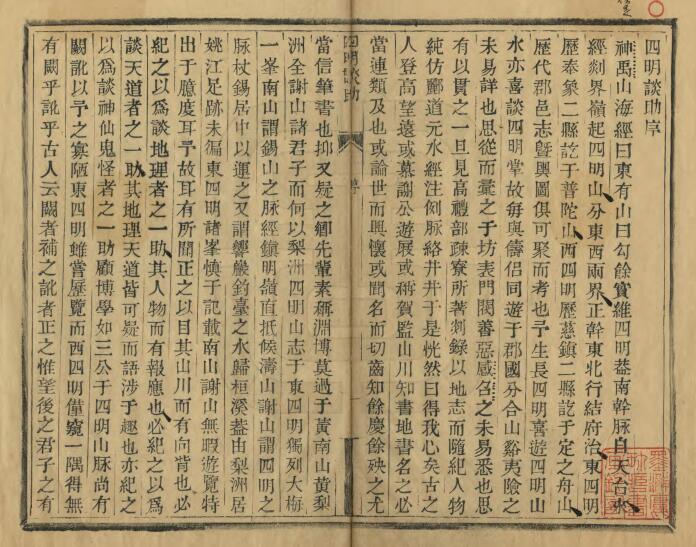 四明談助序
神禹山海經曰東有山曰勾餘實維四明葢南幹脉自天台水
經剡界嶺起四明山分東西兩界正幹東北行結府治東四明
歷奉象二縣訖于普陀山西四明歷慈鎮二縣訖于定之舟山
歷代郡邑志曁輿圖俱可聚而考也予生長四明喜遊四明山
水亦喜談四明掌故每與儔侶同遊于郡國分合山谿夷險之
未易詳也思從而彙之于坊表門閥善惡感召之未易悉也思
有以貫之一旦見高禮部疎寮所著剡錄以地志而隨紀人物
純仿酈道元水經注例脉絡井井于是恍然曰得我心矣古之
人登高望遠或慕謝公遊展或稱賀監山川知書地書名之必
當連類及也或論世而興懷或聞名而切齒知餘慶餘殃之尤
四明談助
序
當信筆書也抑又疑之鄕先輩素稱淵博莫過于黃南山黃梨
洲全謝山諸君子而何以梨洲四明山志于東四明獨列大梅
一峯南山謂錫山之脉經鎮明嶺直抵候濤山謝山謂四明之
脉杖錫居中以運之又謂響巖釣臺之水歸桓溪葢由梨洲居
姚江足跡未徧東四明諸峯慎于記載南山謝山無暇遊覽特
出于臆度耳予故耳有所聞正之以目其山川而有向背也必
紀之以爲談地理者之一助其人物而有報應也必紀之以爲
談天道者之一助其地理天道皆可疑而語涉于趣也亦紀之
以爲談神仙鬼怪者之一助顧博學如三公于四明山脉尚有
闕訛以予之寡陋東四明雖嘗歷覽而西四明僅窺一隅得無
有闕乎訛乎古人云闕者補之訛者正之惟望後之君子之有